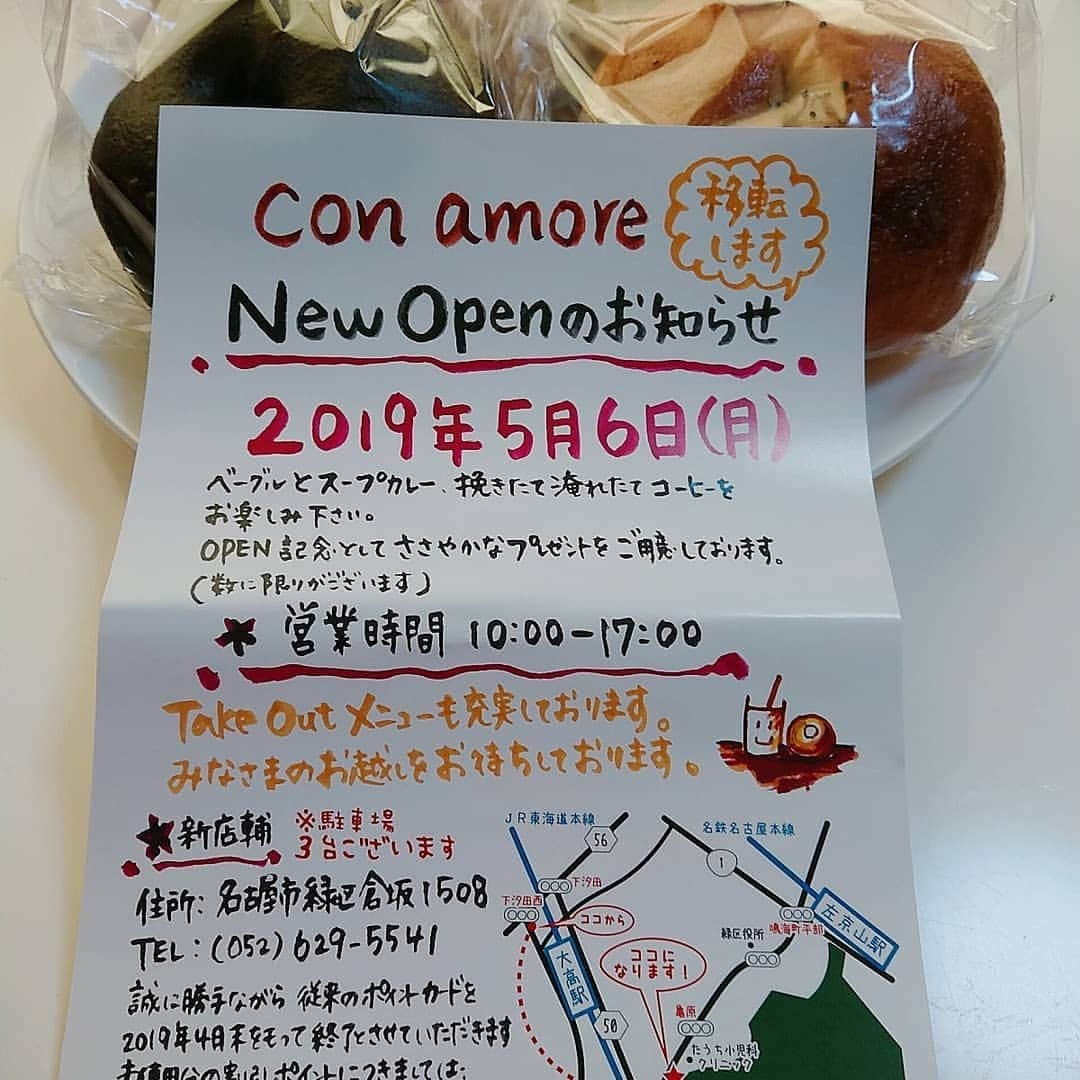 con amore
移転
します
New Openのお知らせ
2019年5月6日(月)
ベーグルとスープカレー、挽きたて淹れたてコーヒーを
お楽しみ下さい。
OPEN記念としてささやかなプレゼントをご用意しております。
(数に限りがございます)
★営業時間 10:00-17:00
Take Outメニューも充実しております。
みなさまのお越しをお待ちしております。
★新店舗
※駐車場
3台ございます
住所:名古屋市緑区倉坂1508
TEL:(052)629-5541
誠に勝手ながら従来のポイントカードを
2019年4月末をもって終了とさせていただきます
未使用分の割引ポイントにつきましては、
JR東海道本線
56
名鉄名古屋本線
1
下汐田
下汐田西
ココから
大高駅
緑区役所
鳴海町平部
左京山駅
ココに
なります!
50
亀原
たうち小児科
クリニック